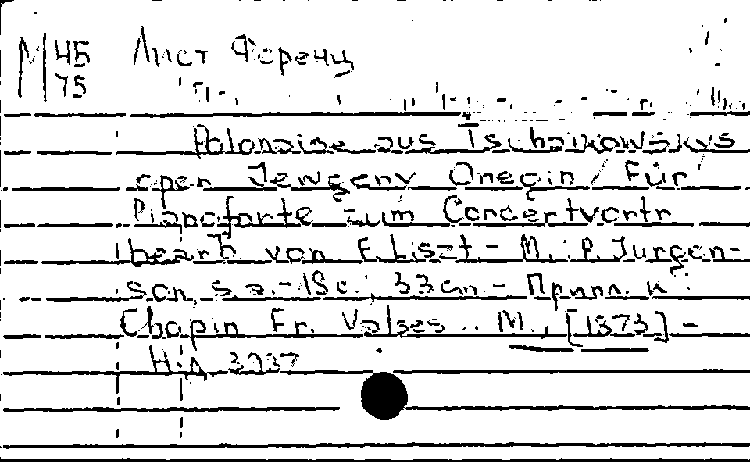 М 45 Лист Ференц
75
Polonaise aus Tschaikowskys
oper Jewgeny Onegin / Für
Pianoforte zum Concertvortr
bearb von F. Liszt. - M.: P. Jurgen-
son, s.a. - 13 c.; 33 cm - Припл. к:
Chopin Fr. Valses .. M., [1873] -
Н.Д. 3937